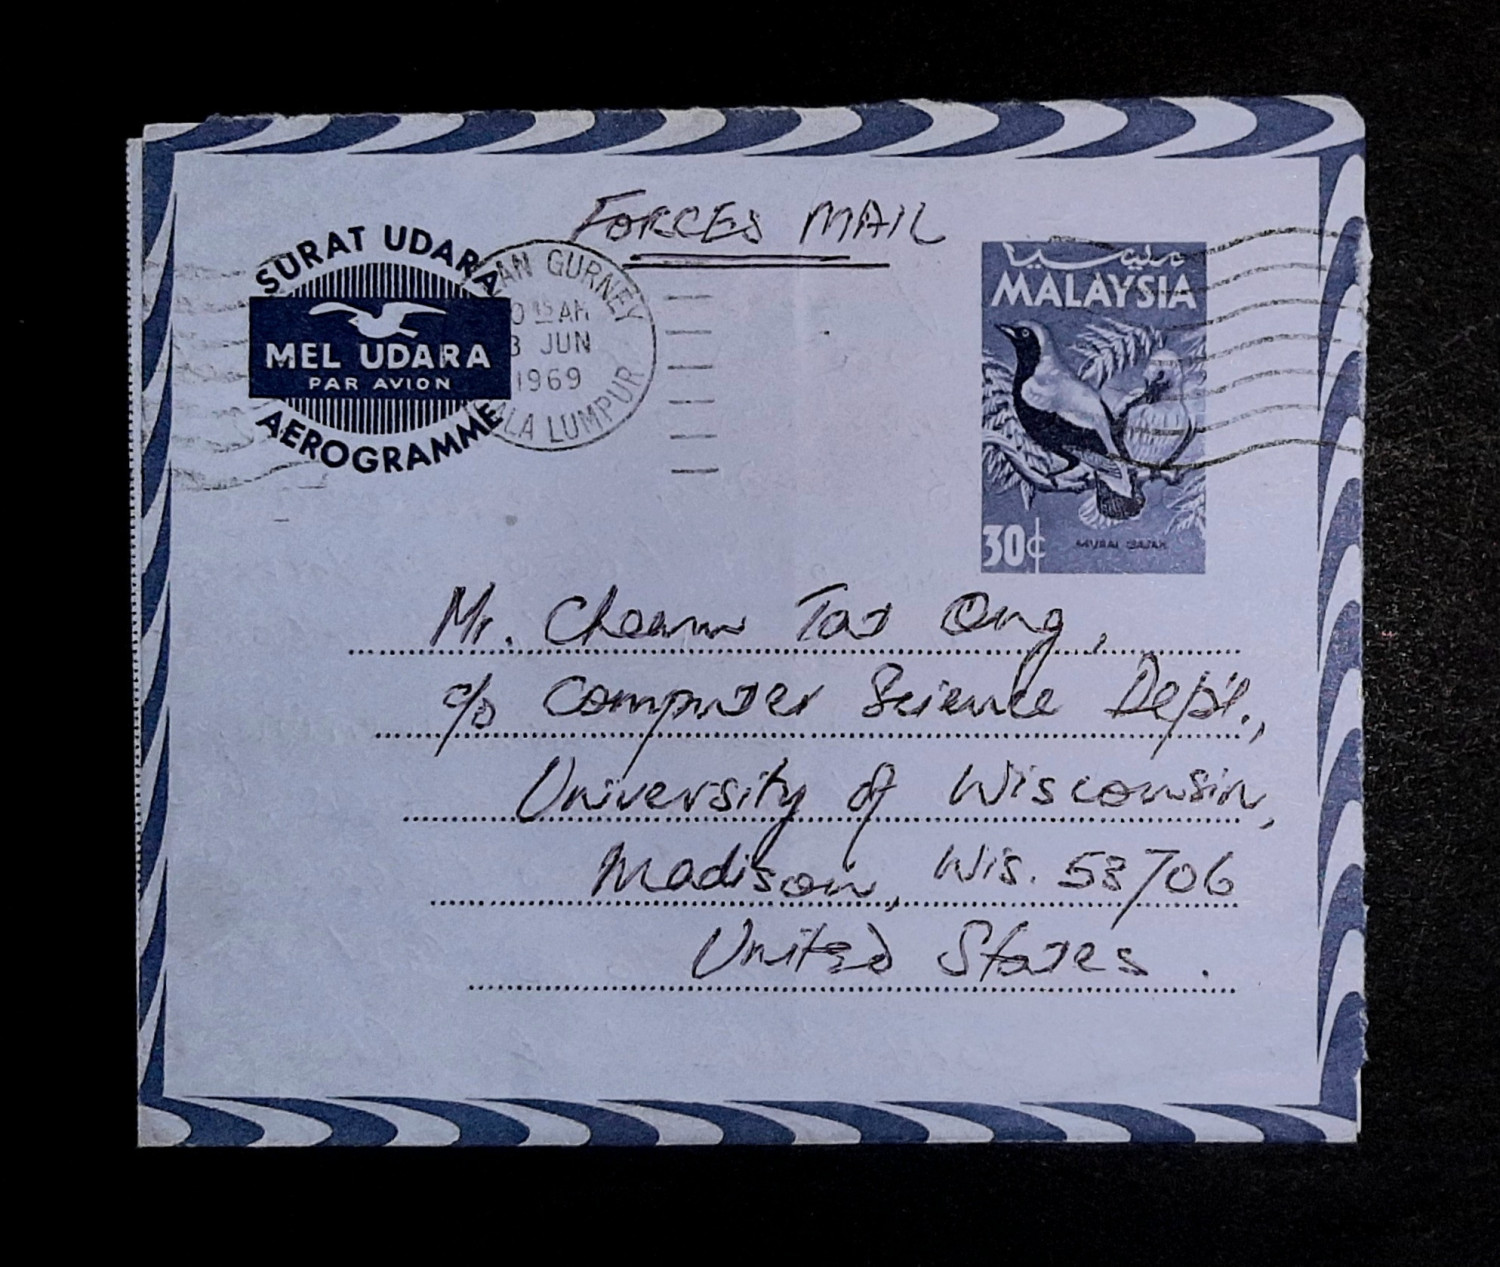 FORCES MAIL
SURAT UDARA
MEL UDARA
PAR AVION
AEROGRAMME
GURNEY
JUN
1969
LUMPUR
مليسيا
MALAYSIA
30¢
Mr. Tat Ong,
c/o Computer Science Dep't.,
University of Wisconsin,
Madison, Wis. 53706
United States.